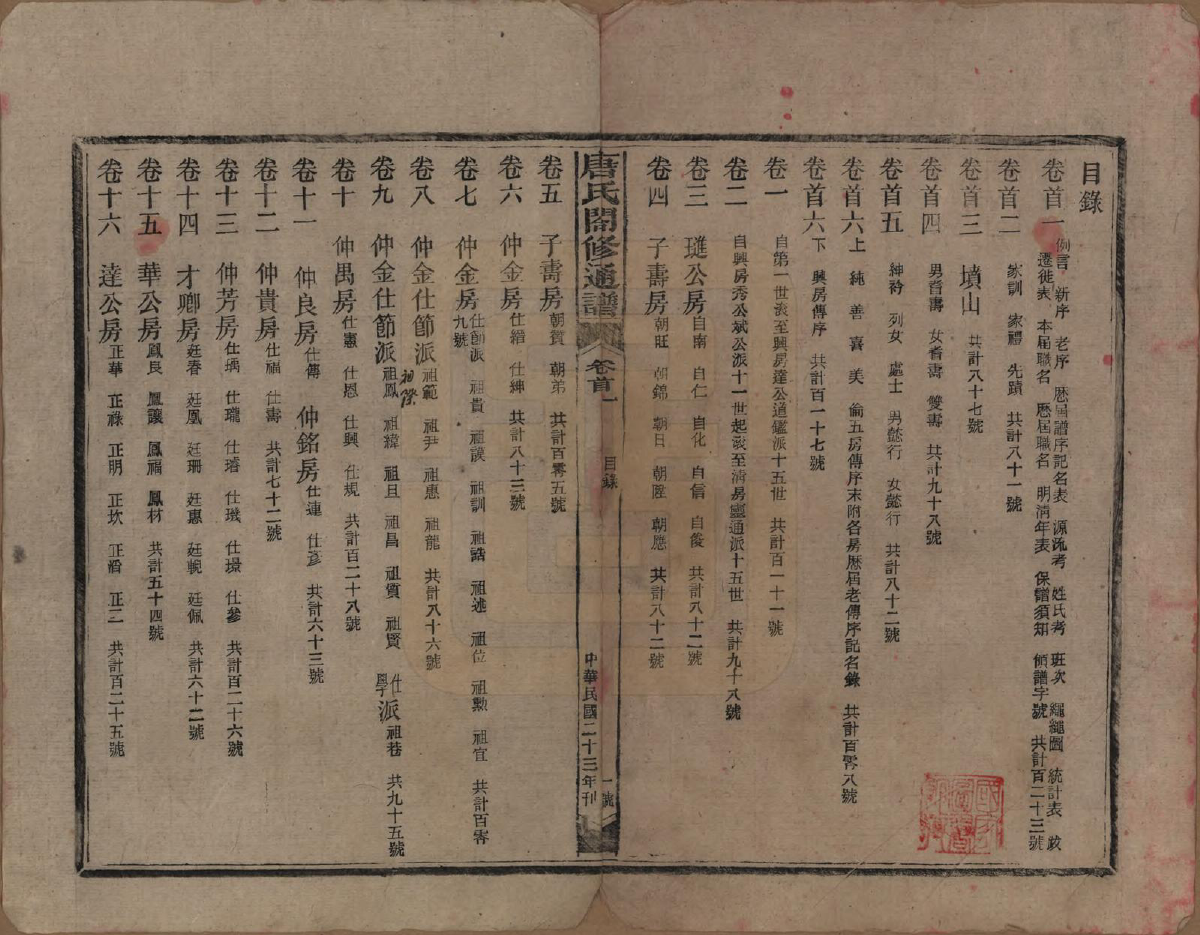 目錄
卷首一 例言 新序 老序 歷屆譜序記名表 源流考 姓氏考 班次 繩繩圖 統計表 遷徙表 本屆職名 歷屆職名 明淸年表 保譜須知 領譜字號 共計百二十三號
卷首二 家訓 家禮 先蹟 共計八十一號
卷首三 墳山 共計八十七號
卷首四 男耆壽 女耆壽 雙壽 共計九十八號
卷首五 紳衿 列女 處士 男懿行 女懿行 共計八十二號
卷首六上 純 善 喜 美 倫五房傳序末附各房歷屆老傳序記名錄 共計百零八號
卷首六下 興房傳序 共計百一十七號
卷一 自第一世派至興房達公道鑑派十五世 共計百一十一號
卷二 自興房秀公斌公派十一世起派至淸房靈通派十五世 共計九十八號
卷三 璡公房 自南 自仁 自化 自信 自俊 共計八十二號
卷四 子壽房 朝旺 朝錦 朝日 朝陞 朝應 共計八十二號
唐氏闔修通譜 卷首一 目錄 一號
中華民國二十三年刊
卷五 子壽房 朝贊 朝弟 共計百零五號
卷六 仲金房 仕縉 仕紳 共計八十三號
卷七 仲金房 仕節派 祖貴 祖謨 祖訓 祖誥 祖述 祖位 祖勲 祖宜 共計百零九號
卷八 仲金仕節派 祖範 祖尹 祖惠 祖龍 共計八十六號
卷九 仲金仕節派 祖鳳 祖緯 祖旦 祖昌 祖質 祖賢 仕學派 祖巷 共九十五號
卷十 仲禺房 仕憲 仕恩 仕興 仕規 共計百二十八號
卷十一 仲良房 仕傳 仲銘房 仕連 仕彥 共計六十三號
卷十二 仲貴房 仕福 仕壽 共計七十二號
卷十三 仲芳房 仕瑀 仕瓏 仕璿 仕璣 仕璟 仕參 共計百二十六號
卷十四 才卿房 廷春 廷凰 廷珊 廷惠 廷輗 廷佩 共計六十二號
卷十五 華公房 鳳良 鳳讓 鳳福 鳳材 共計五十四號
卷十六 達公房 正華 正祿 正明 正坎 正滔 正二 共計百二十五號